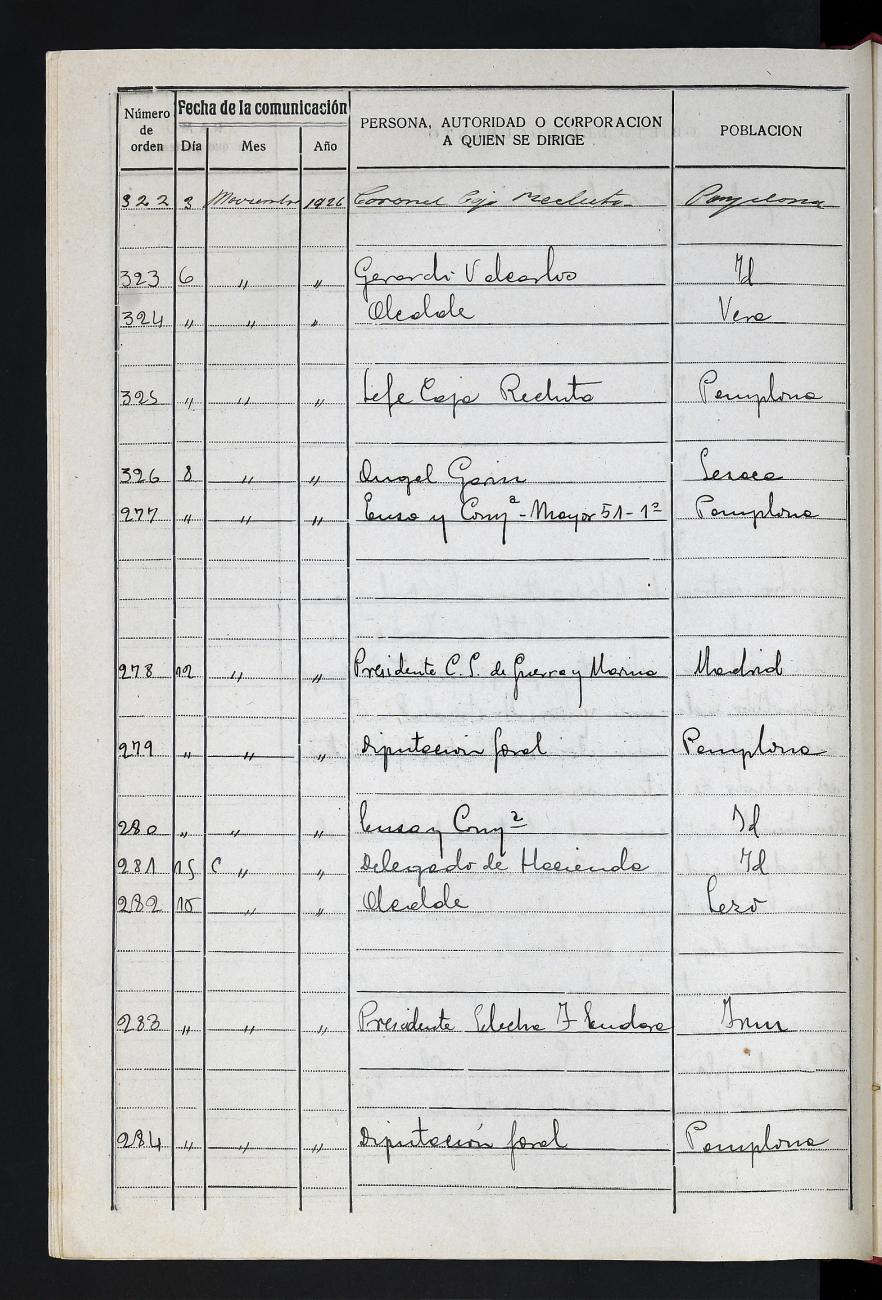 Número de orden Fecha de la comunicación PERSONA, AUTORIDAD O CORPORACION A QUIEN SE DIRIGE POBLACION
Día Mes Año
322 3 Noviembre 1926 Coronel Caja Recluta Pamplona
323 6 〃 〃 Gerardo Valcarlos Id
324 〃 〃 〃 Alcalde Vera
325 〃 〃 〃 Jefe Caja Recluta Pamplona
326 8 〃 〃 Angel Garin Lesaca
277 〃 〃 〃 y Compª - Mayor 51-1º Pamplona
278 12 〃 〃 Presidente C. S. de Guerra y Marina Madrid
279 〃 〃 〃 Diputación foral Pamplona
280 〃 〃 〃 y Compª Id
281 15 〃 〃 Delegado de Hacienda Id
282 15 〃 〃 Alcalde Lezo
283 〃 〃 〃 Presidente Electra Irun
284 〃 〃 〃 Diputación foral Pamplona